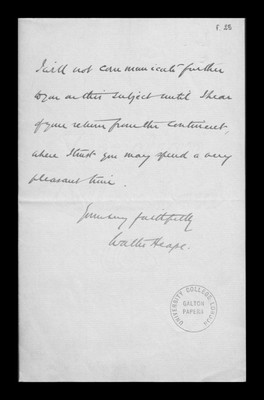 f. 2B
I will not communicate further
to you on this subject until I hear
of your return from the Continent,
where I trust you may spend a very
pleasant time.
Yours very faithfully
Walter Heape.
UNIVERSITY COLLEGE LONDON
GALTON
PAPERS